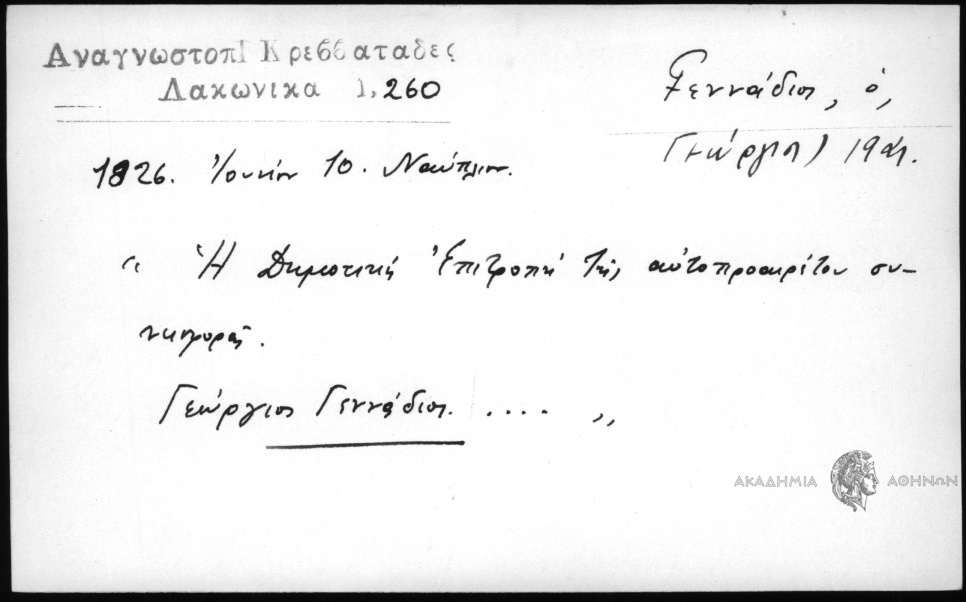 Αναγνωστοπ Κρεββαταδες
Λακωνικα 1, 260
Γεννάδιος, ὁ,
Γεώργιος) 19
1826. Ἰουνίου 10. Ναύπλιον.
“ Ἡ Δημοτική Ἐπιτροπή τῆς αὐτοπροαιρέτου συ-
νεισφορᾶς.
Γεώργιος Γεννάδιος. .... ,,
ΑΚΑΔΗΜΙΑ ΑΘΗΝΩΝ